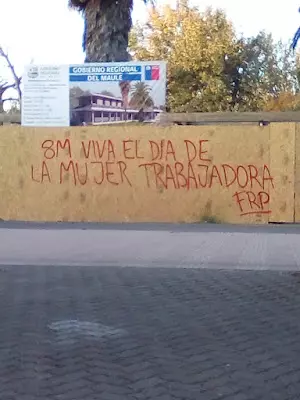 GOBIERNO REGIONAL
DEL MAULE
8M VIVA EL DIA DE
LA MUJER TRABAJADORA
FRP